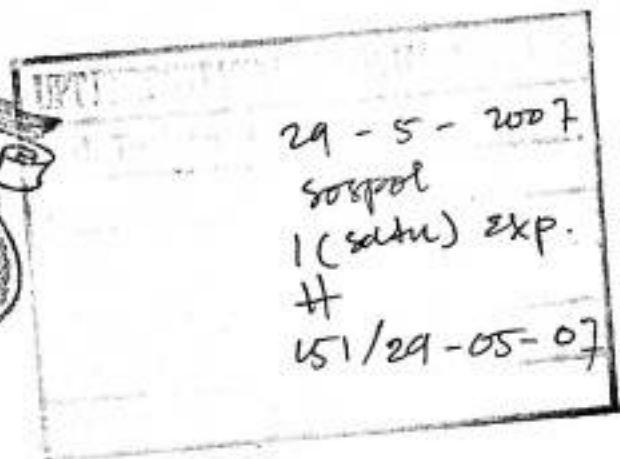 UPT
29 - 5 - 2007
sospol
1 (satu) exp.
H
151/29-05-07